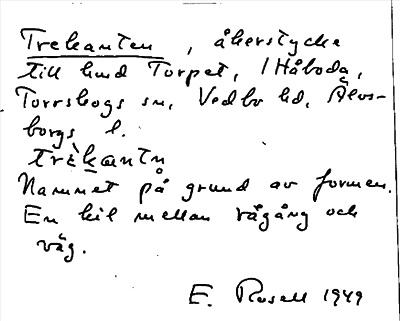 Trekanten, åkerstycke
till hmd Torpet, 1 Håboda,
Torrskogs sn, Vedbo hd, Älvs-
borgs l.
trèkantn
Namnet på grund av formen.
En kil mellan rågång och
väg.
E. Rosell 1949